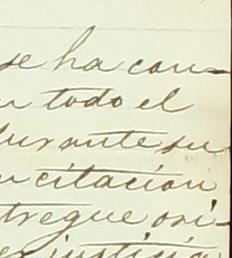 se ha con-
n todo el
durante su
n citacion
tregue ori-
er justicia